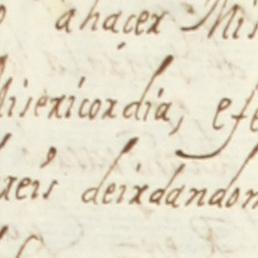 ahaçer Mis
Misericordia, efe
xeis deixdandom